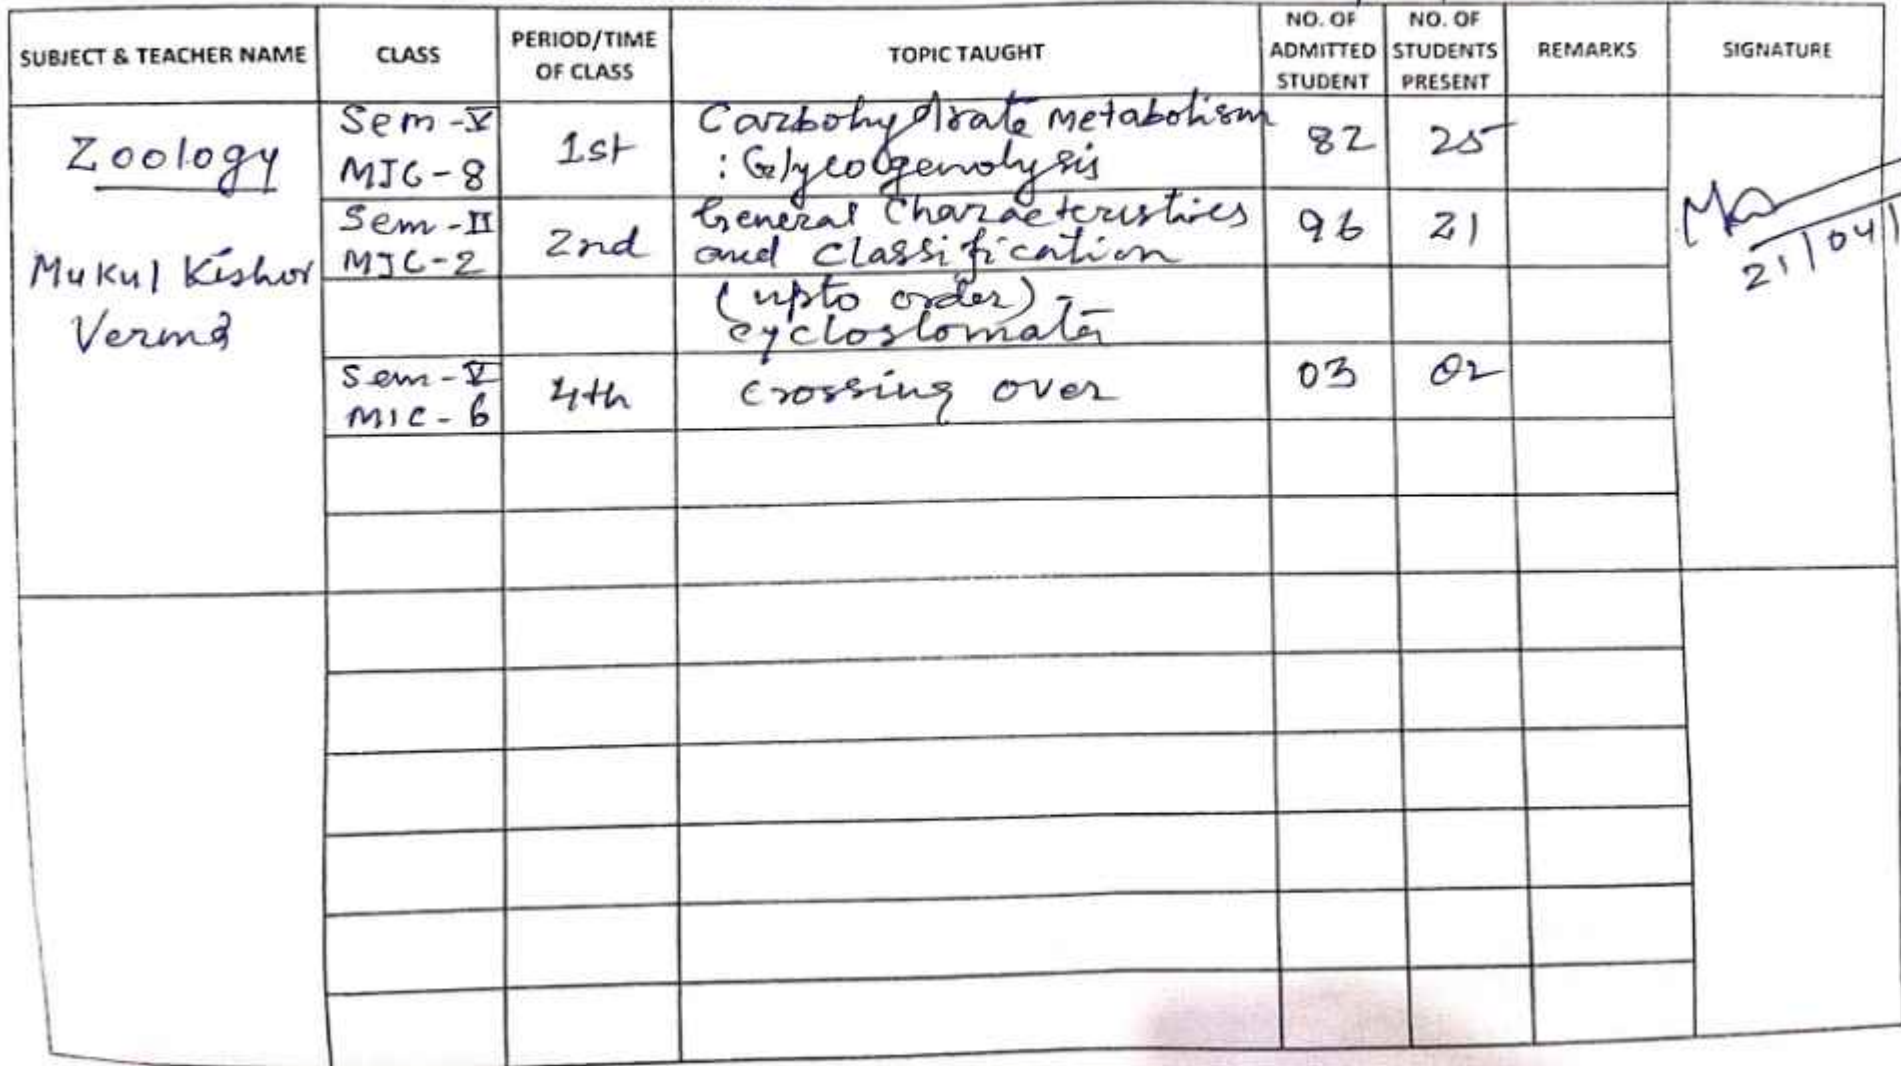 SUBJECT & TEACHER NAME
CLASS
PERIOD/TIME
OF CLASS
TOPIC TAUGHT
NO. OF
ADMITTED
STUDENT
NO. OF
STUDENTS
PRESENT
REMARKS
SIGNATURE
Zoology
Mukul Kishor
Verma
Sem-V
MJC-8
1st
Carbohydrate Metabolism
: Glycogenolysis
82
25
Sem-II
MJC-2
2nd
General Characteristics
and Classification
96
21
(upto order) -
cyclostomata
Sem-V
MIC-6
4th
crossing over
03
02
21/04/